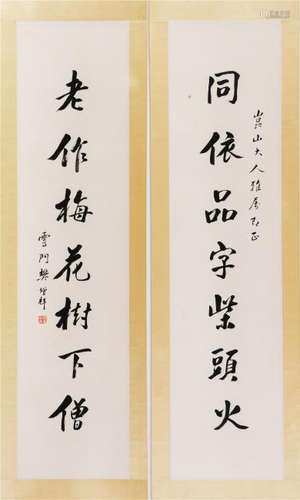 同依品字柴頭火
山大人雅屬即正
老作梅花樹下僧
雲門樊增祥